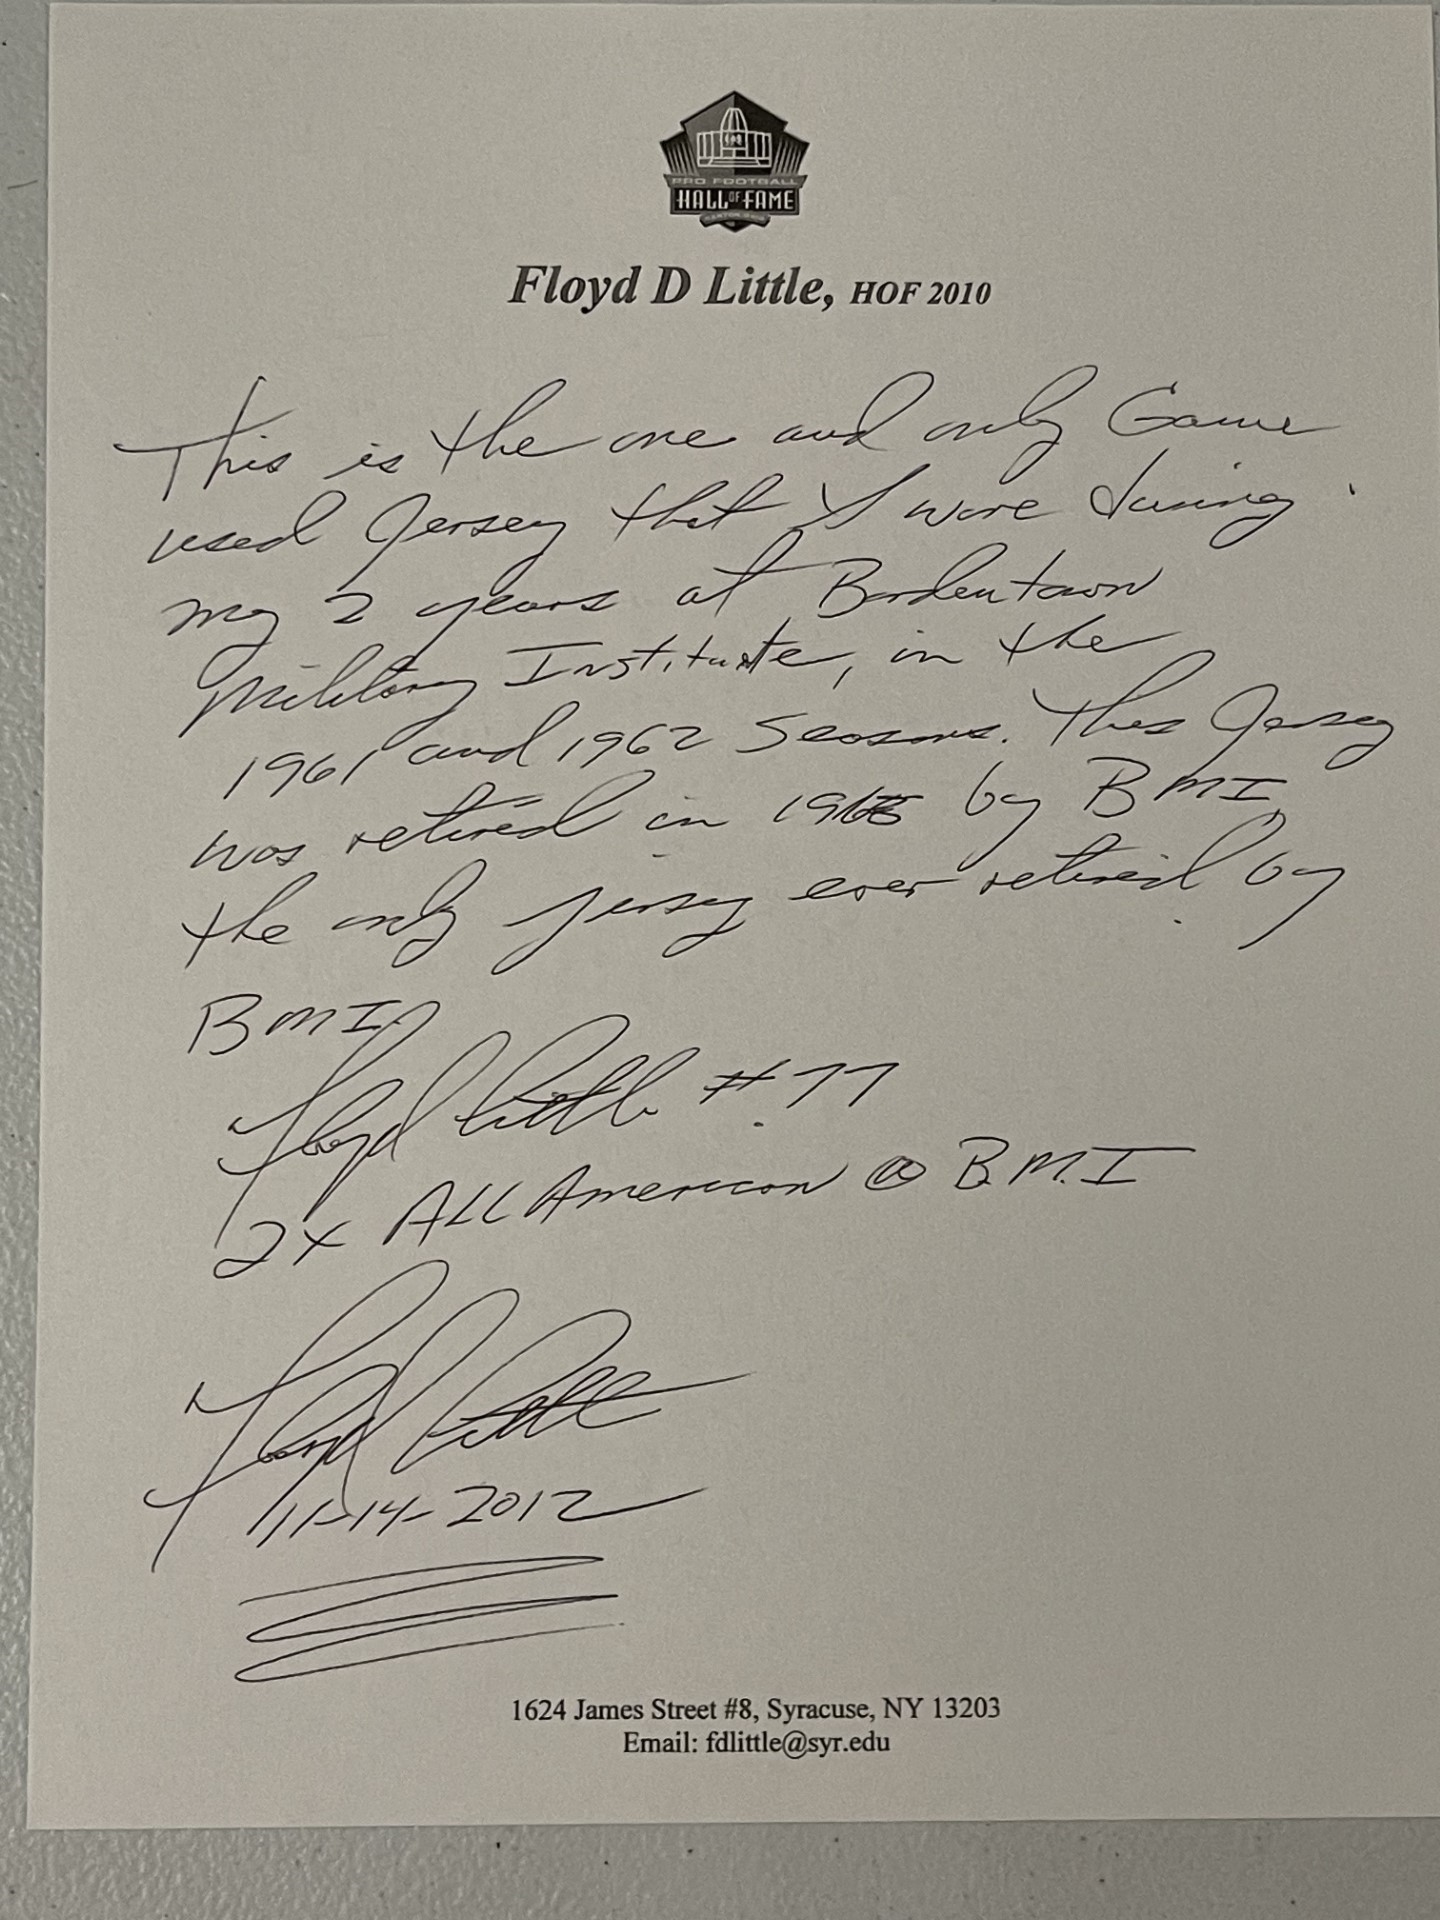 PRO FOOTBALL
HALL OF FAME
CANTON, OHIO
Floyd D Little, HOF 2010
This is the one and only Game
used Jersey that I wore during
my 2 years at Bordentown
Military Institute, in the
1961 and 1962 Seasons. This Jersey
was retired in by BMI,
the only jersey ever retired by
BMI.
Floyd Little #77
2x ALL American @ B.M.I
Floyd Little
11-14-2012
1624 James Street #8, Syracuse, NY 13203
Email: fdlittle@syr.edu